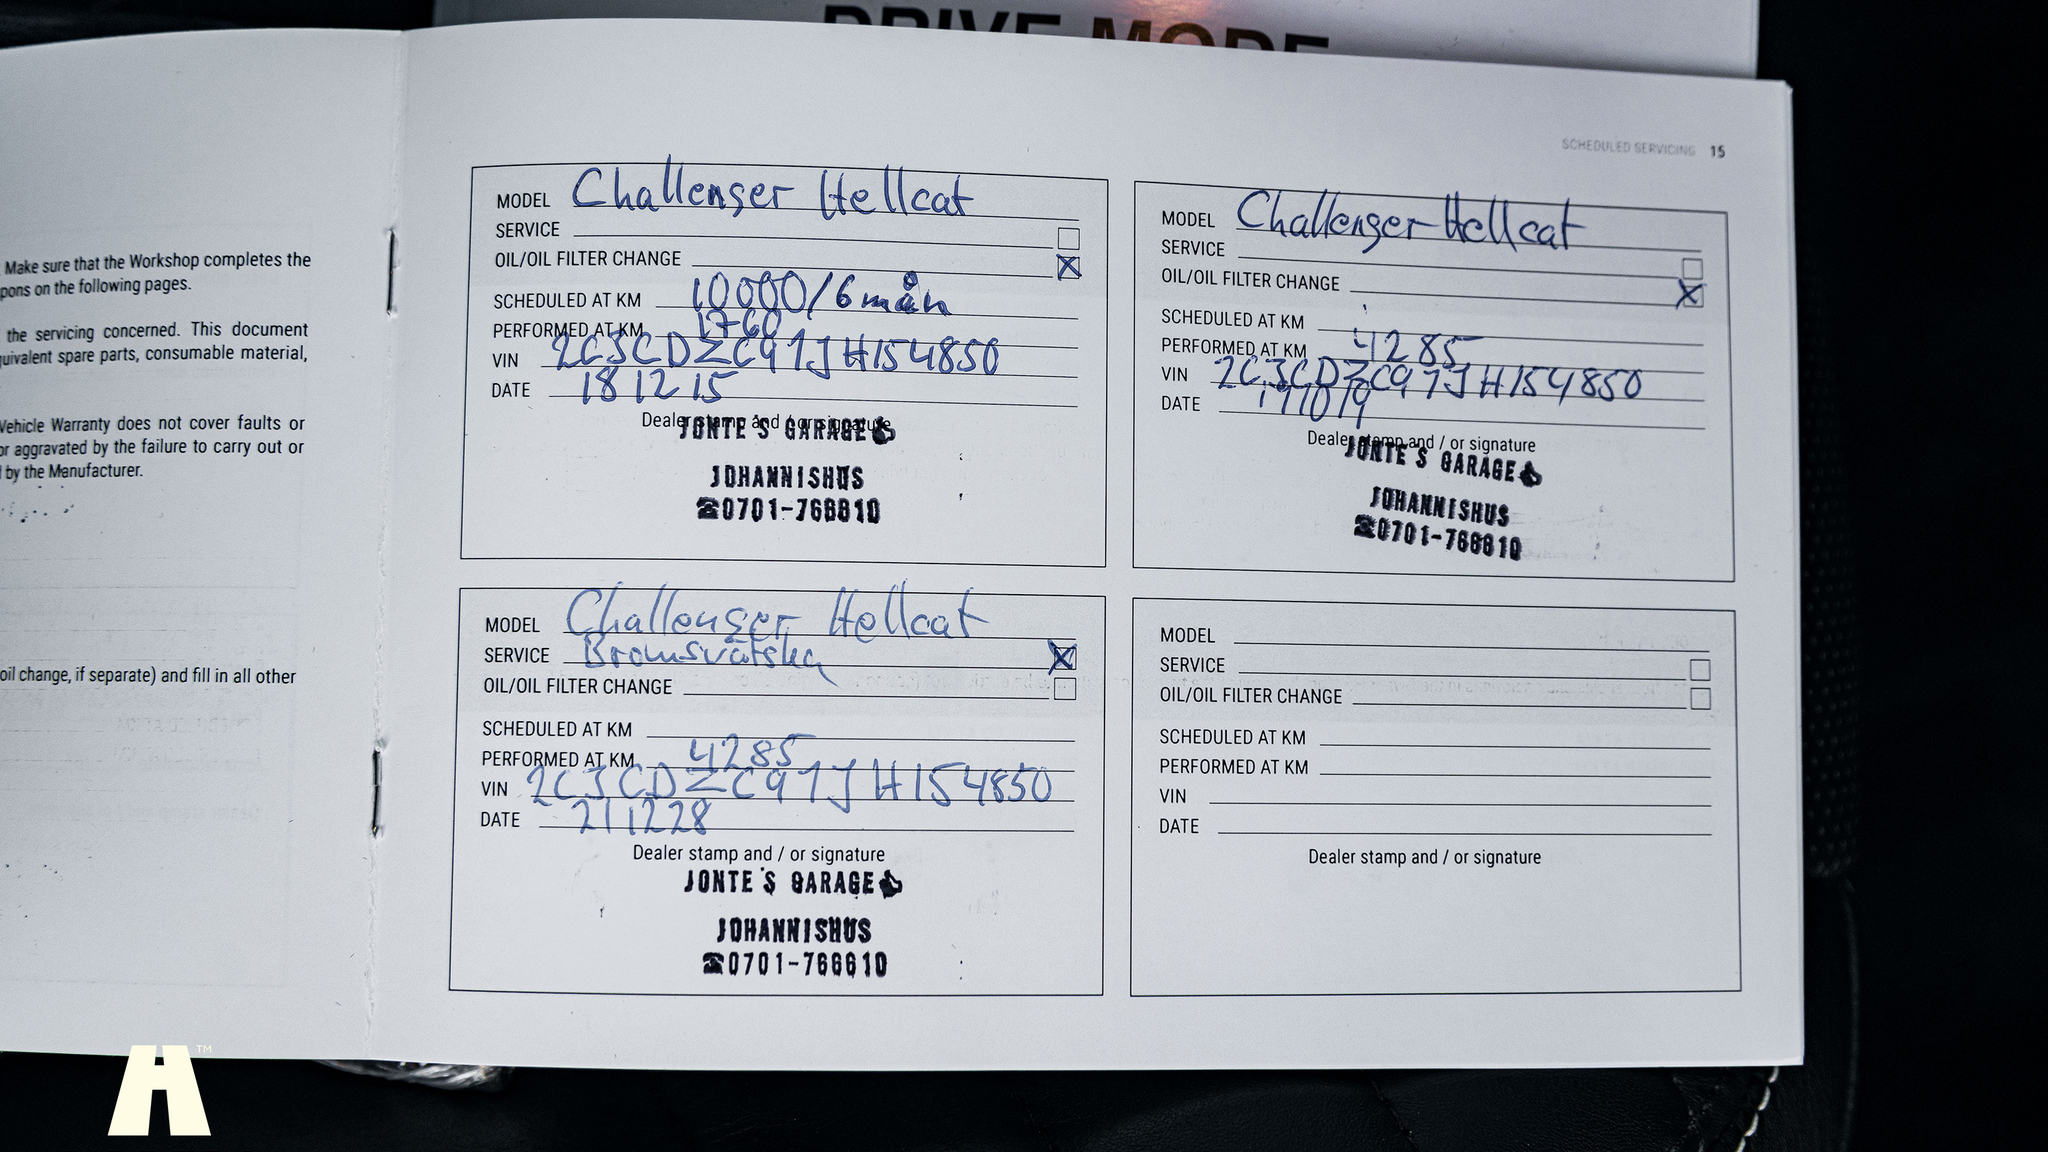 DRIVE MODE
SCHEDULED SERVICING 15
Make sure that the Workshop completes the
pons on the following pages.
the servicing concerned. This document
quivalent spare parts, consumable material,
Vehicle Warranty does not cover faults or
or aggravated by the failure to carry out or
by the Manufacturer.
oil change, if separate) and fill in all other
MODEL Challenger Hellcat
SERVICE
OIL/OIL FILTER CHANGE X
SCHEDULED AT KM 10000/6 mån
PERFORMED AT KM 1760
VIN 2C3CDZC97JH154850
DATE 181215
Dealer stamp and / or signature
JONTE'S GARAGE
JOHANNISHUS
☎0701-766610
MODEL Challenger Hellcat
SERVICE
OIL/OIL FILTER CHANGE X
SCHEDULED AT KM
PERFORMED AT KM 4285
VIN 2C3CDZC97JH154850
DATE 191019
Dealer stamp and / or signature
JONTE'S GARAGE
JOHANNISHUS
☎0701-766610
MODEL Challenger Hellcat
SERVICE Bromsvätska X
OIL/OIL FILTER CHANGE
SCHEDULED AT KM
PERFORMED AT KM 4285
VIN 2C3CDZC97JH154850
DATE 211228
Dealer stamp and / or signature
JONTE'S GARAGE
JOHANNISHUS
☎0701-766610
MODEL
SERVICE
OIL/OIL FILTER CHANGE
SCHEDULED AT KM
PERFORMED AT KM
VIN
DATE
Dealer stamp and / or signature
H™